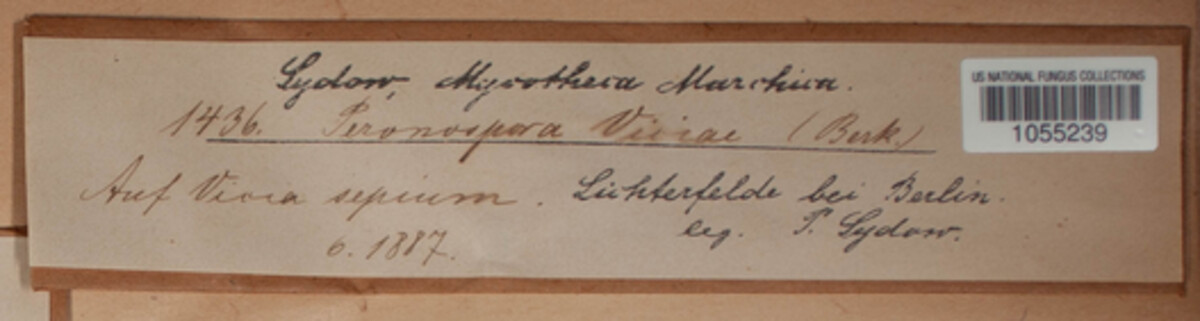 Sydow, Mycotheca Marchica.
US NATIONAL FUNGUS COLLECTIONS
1055239
1436. Peronospora Viciae (Berk.)
Auf Vicia sepium. Lichterfelde bei Berlin.
6. 1887. leg. P. Sydow.